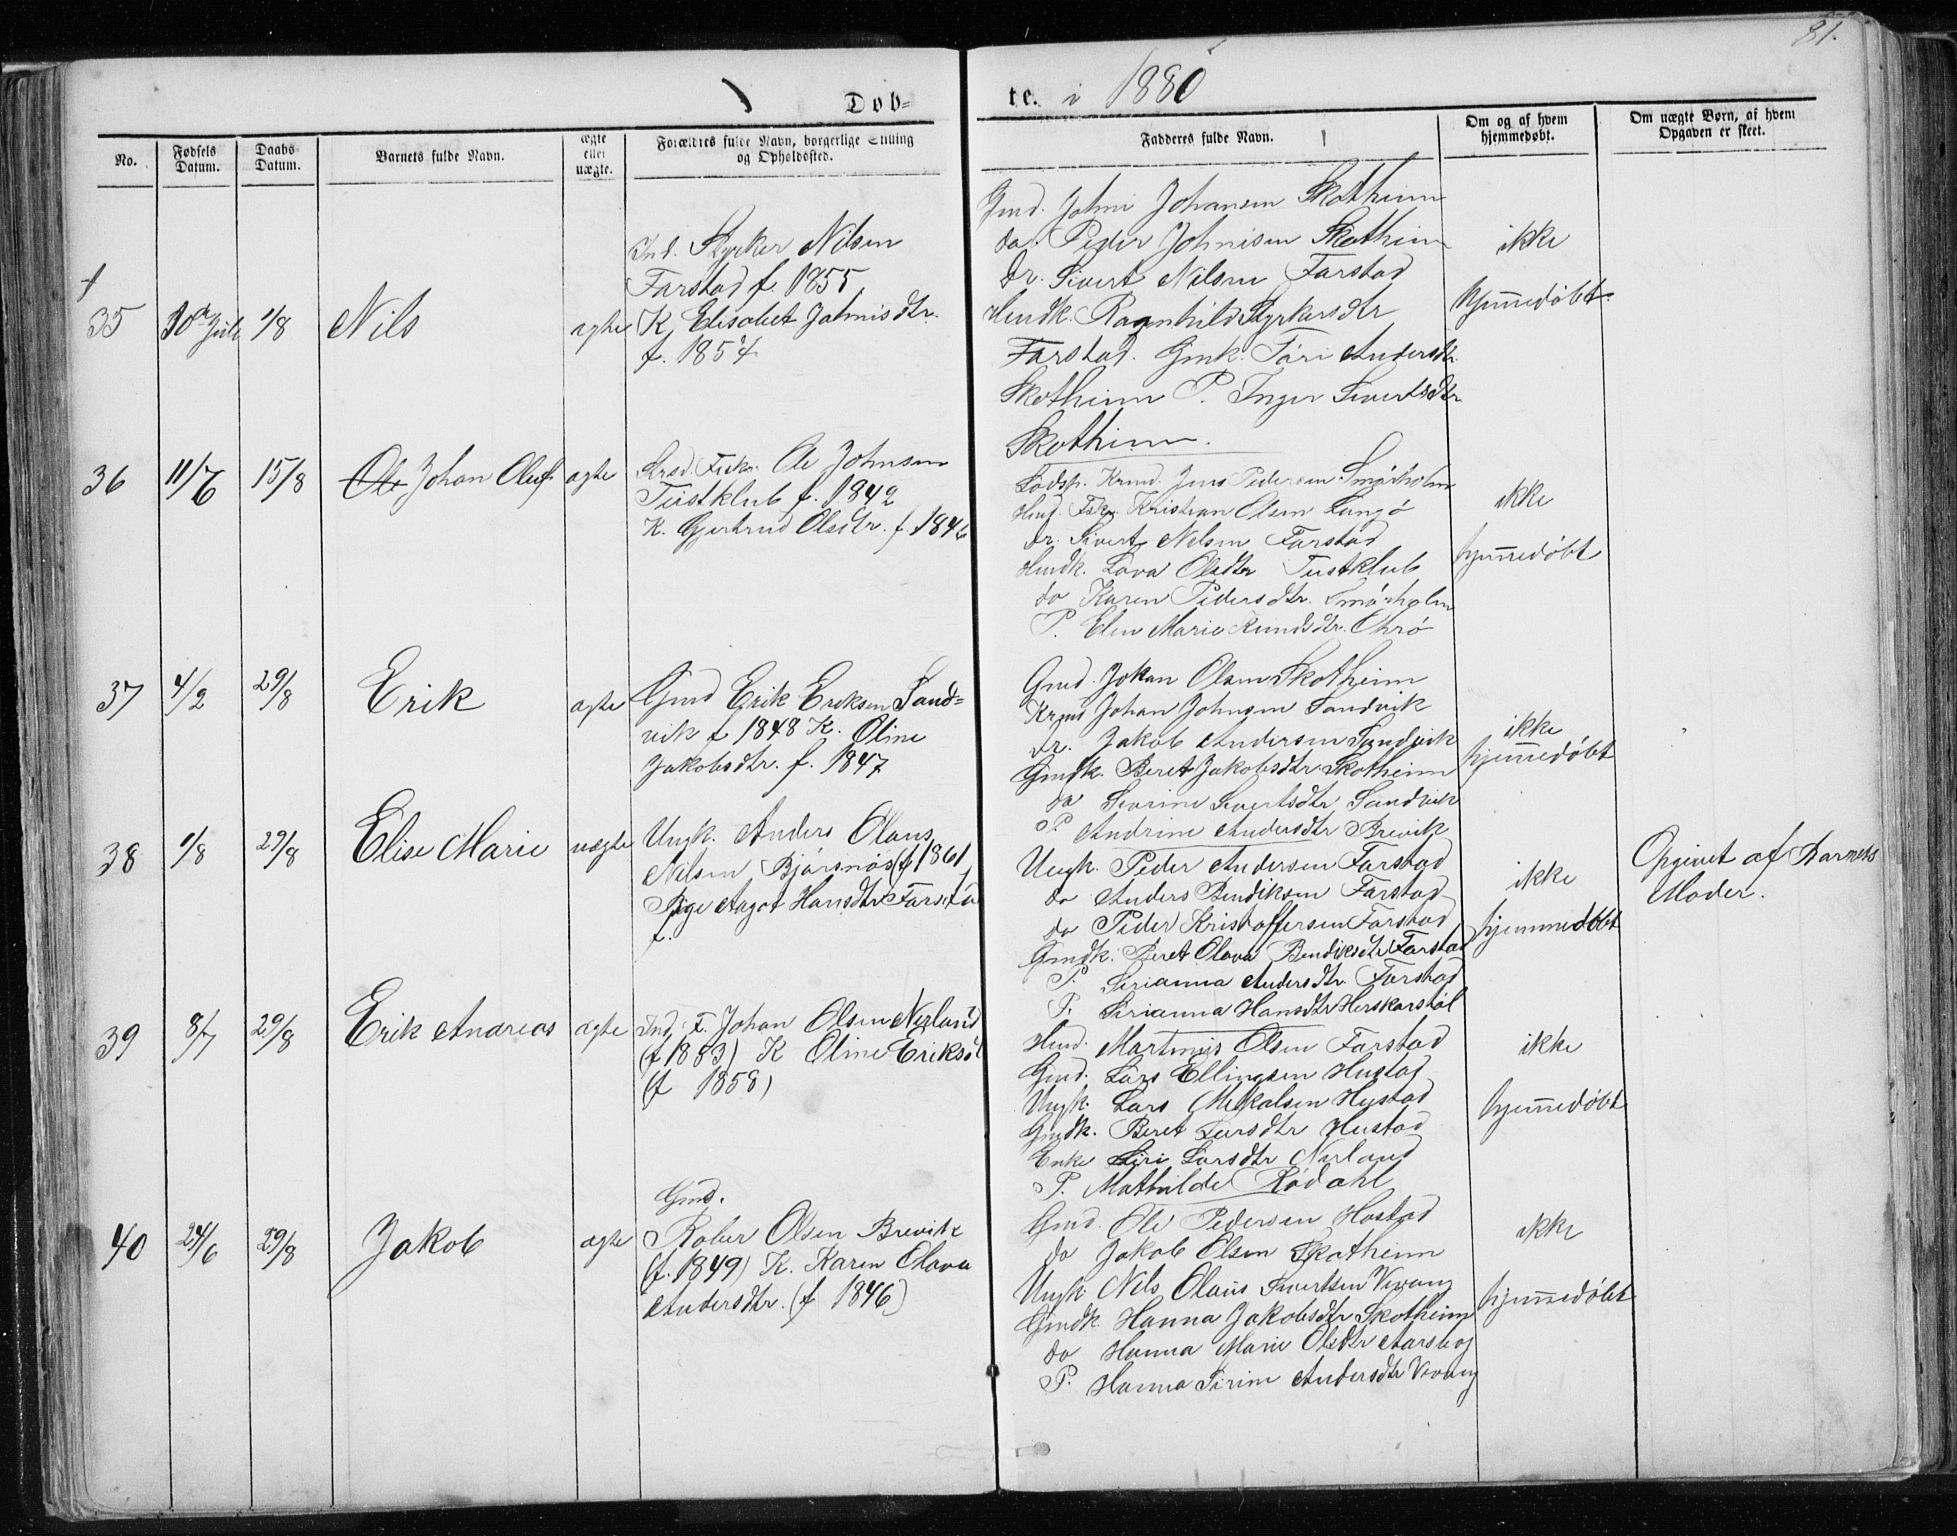 81.
Døb= te. i 1880
No.
Fødsels Datum.
Daabs Datum.
Barnets fulde Navn.
ægte eller uægte.
Forældres fulde Navn, borgerlige Stilling og Opholdssted.
Fadderes fulde Navn.
Om og af hvem hjemmedøbt.
Om uægte Børn, af hvem Opgaven er skeet.
35
30te Juli
1/8
Nils
ægte
Ind. Styrker Nilsen
Farstad f. 1855
K. Elisabet Johnisdtr.
f. 1857
Gmd. Johni Johansen Skotheim
do. Peder Johnisen Skotheim
Dr. Sivert Nilsen Farstad
Hmdk. Ragnhild Styrkersdtr
Farstad. Gmk. Töri Andersdtr.
Skotheim P. Inger Sivertsdtr
Skotheim.
ikke
hjemmedøbt
36
11/6
15/8
Ole Johan Oluf
ægte
Fisk. Ole Johnsen
Tustklub f. 1842
K. Gjertrud Olsdtr. f. 1846
Lodsp. Krmd. Jens Pedersen Smörholm
Hmd. Fsk. Kristian Olsen Langö
Dr. Sivert Nilsen Farstad
Hmdk. Lava Olsdtr Tustklub
do Karen Pedersdtr. Smörholm
P. Elen Marie Knudsdtr.
ikke
hjemmedøbt
37
4/2
29/8
Erik
ægte
Gmd Erik Eriksen Sand=
vik f 1848 K. Oline
Jakobsdtr. f. 1847
Gmd. Johan Olsen Skotheim
Krmd Johan Johnsen Sandvik
Dr. Jakob Andersen Sandvik
Gmdk. Beret Jakobsdtr Skotheim
do Sivrine Sivertsdtr Sandvik
P. Andrine Andersdtr Brevik
ikke
hjemmedøbt
38
1/8
29/8
Elise Marie
uægte
Ungk. Anders Olaus
Nilsen Bjørnøs (f 1861
Pige Aagot Hansdtr Farstad
f.
Ungk. Peder Andersen Farstad
do Anders Bendiksen Farstad
do Peder Kristoffersen Farstad
Gmdk. Beret Olava Bendiksdtr Farstad
P. Sirianna Andersdtr Farstad
P. Sirianna Hansdtr Herskarstöl
ikke
hjemmedøbt
Opgivet af Barnets
Moder.
39
8/7
29/8
Erik Andreas
ægte
Ind. F. Johan Olsen Nerland
(f 1853) K Oline Eriksd
(f 1858)
Hmd. Martinus Olsen Farstad
Gmd. Lars Ellingsen Hustad
Ungk. Lars Mikalsen Hustad
Gmdk. Beret Larsdtr Hustad
Enke Siri Larsdtr Nerland
P. Mathilde Rödahl
ikke
hjemmedøbt
40
24/6
29/8
Jakob
ægte
Gmd.
Olsen Brevik
(f. 1849) K. Karen Olava
Andersdtr. (f 1846)
Gmd. Ole Pedersen Hostad
do Jakob Olsen Skotheim
Ungk Nils Olaus Sivertsen Vevang
Gmdk. Hanna Jakobsdtr Skotheim
do Hanna Marie Olsdtr Aarsbog
P. Hanna Sirine Andersdtr Vevang
ikke
hjemmedøbt